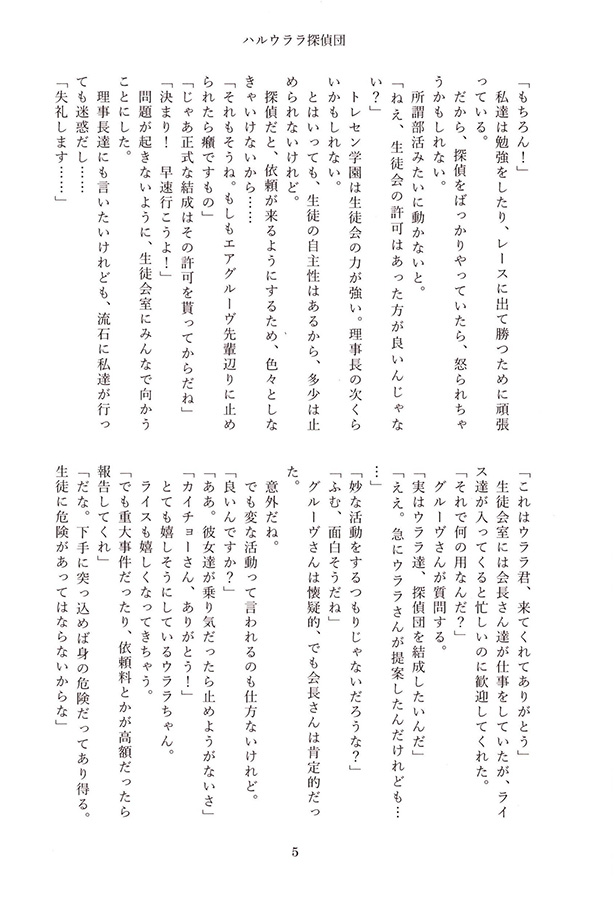 ハルウララ探偵団
「もちろん！」
　私達は勉強をしたり、レースに出て勝つために頑張
っている。
　だから、探偵をばっかりやっていたら、怒られちゃ
うかもしれない。
　所謂部活みたいに動かないと。
「ねえ、生徒会の許可はあった方が良いんじゃな
い？」
　トレセン学園は生徒会の力が強い。理事長の次くら
いかもしれない。
　とはいっても、生徒の自主性はあるから、多少は止
められないけれど。
　探偵だと、依頼が来るようにするため、色々としな
きゃいけないから……
「それもそうね。もしもエアグルーヴ先輩辺りに止め
られたら癪ですもの」
「じゃあ正式な結成はその許可を貰ってからだね」
「決まり！　早速行こうよ！」
　問題が起きないように、生徒会室にみんなで向かう
ことにした。
　理事長達にも言いたいけれども、流石に私達が行っ
ても迷惑だし……
「失礼します……」
「これはウララ君、来てくれてありがとう」
　生徒会室には会長さん達が仕事をしていたが、ライ
ス達が入ってくると忙しいのに歓迎してくれた。
「それで何の用なんだ？」
　グルーヴさんが質問する。
「実はウララ達、探偵団を結成したいんだ」
「ええ。急にウララさんが提案したんだけれども…
…」
「妙な活動をするつもりじゃないだろうな？」
「ふむ、面白そうだね」
　グルーヴさんは懐疑的、でも会長さんは肯定的だっ
た。
　意外だね。
　でも変な活動って言われるのも仕方ないけれど。
「良いんですか？」
「ああ。彼女達が乗り気だったら止めようがないさ」
「カイチョーさん、ありがとう！」
　とても嬉しそうにしているウララちゃん。
　ライスも嬉しくなってきちゃう。
「でも重大事件だったり、依頼料とかが高額だったら
報告してくれ」
「だな。下手に突っ込めば身の危険だってあり得る。
生徒に危険があってはならないからな」
5